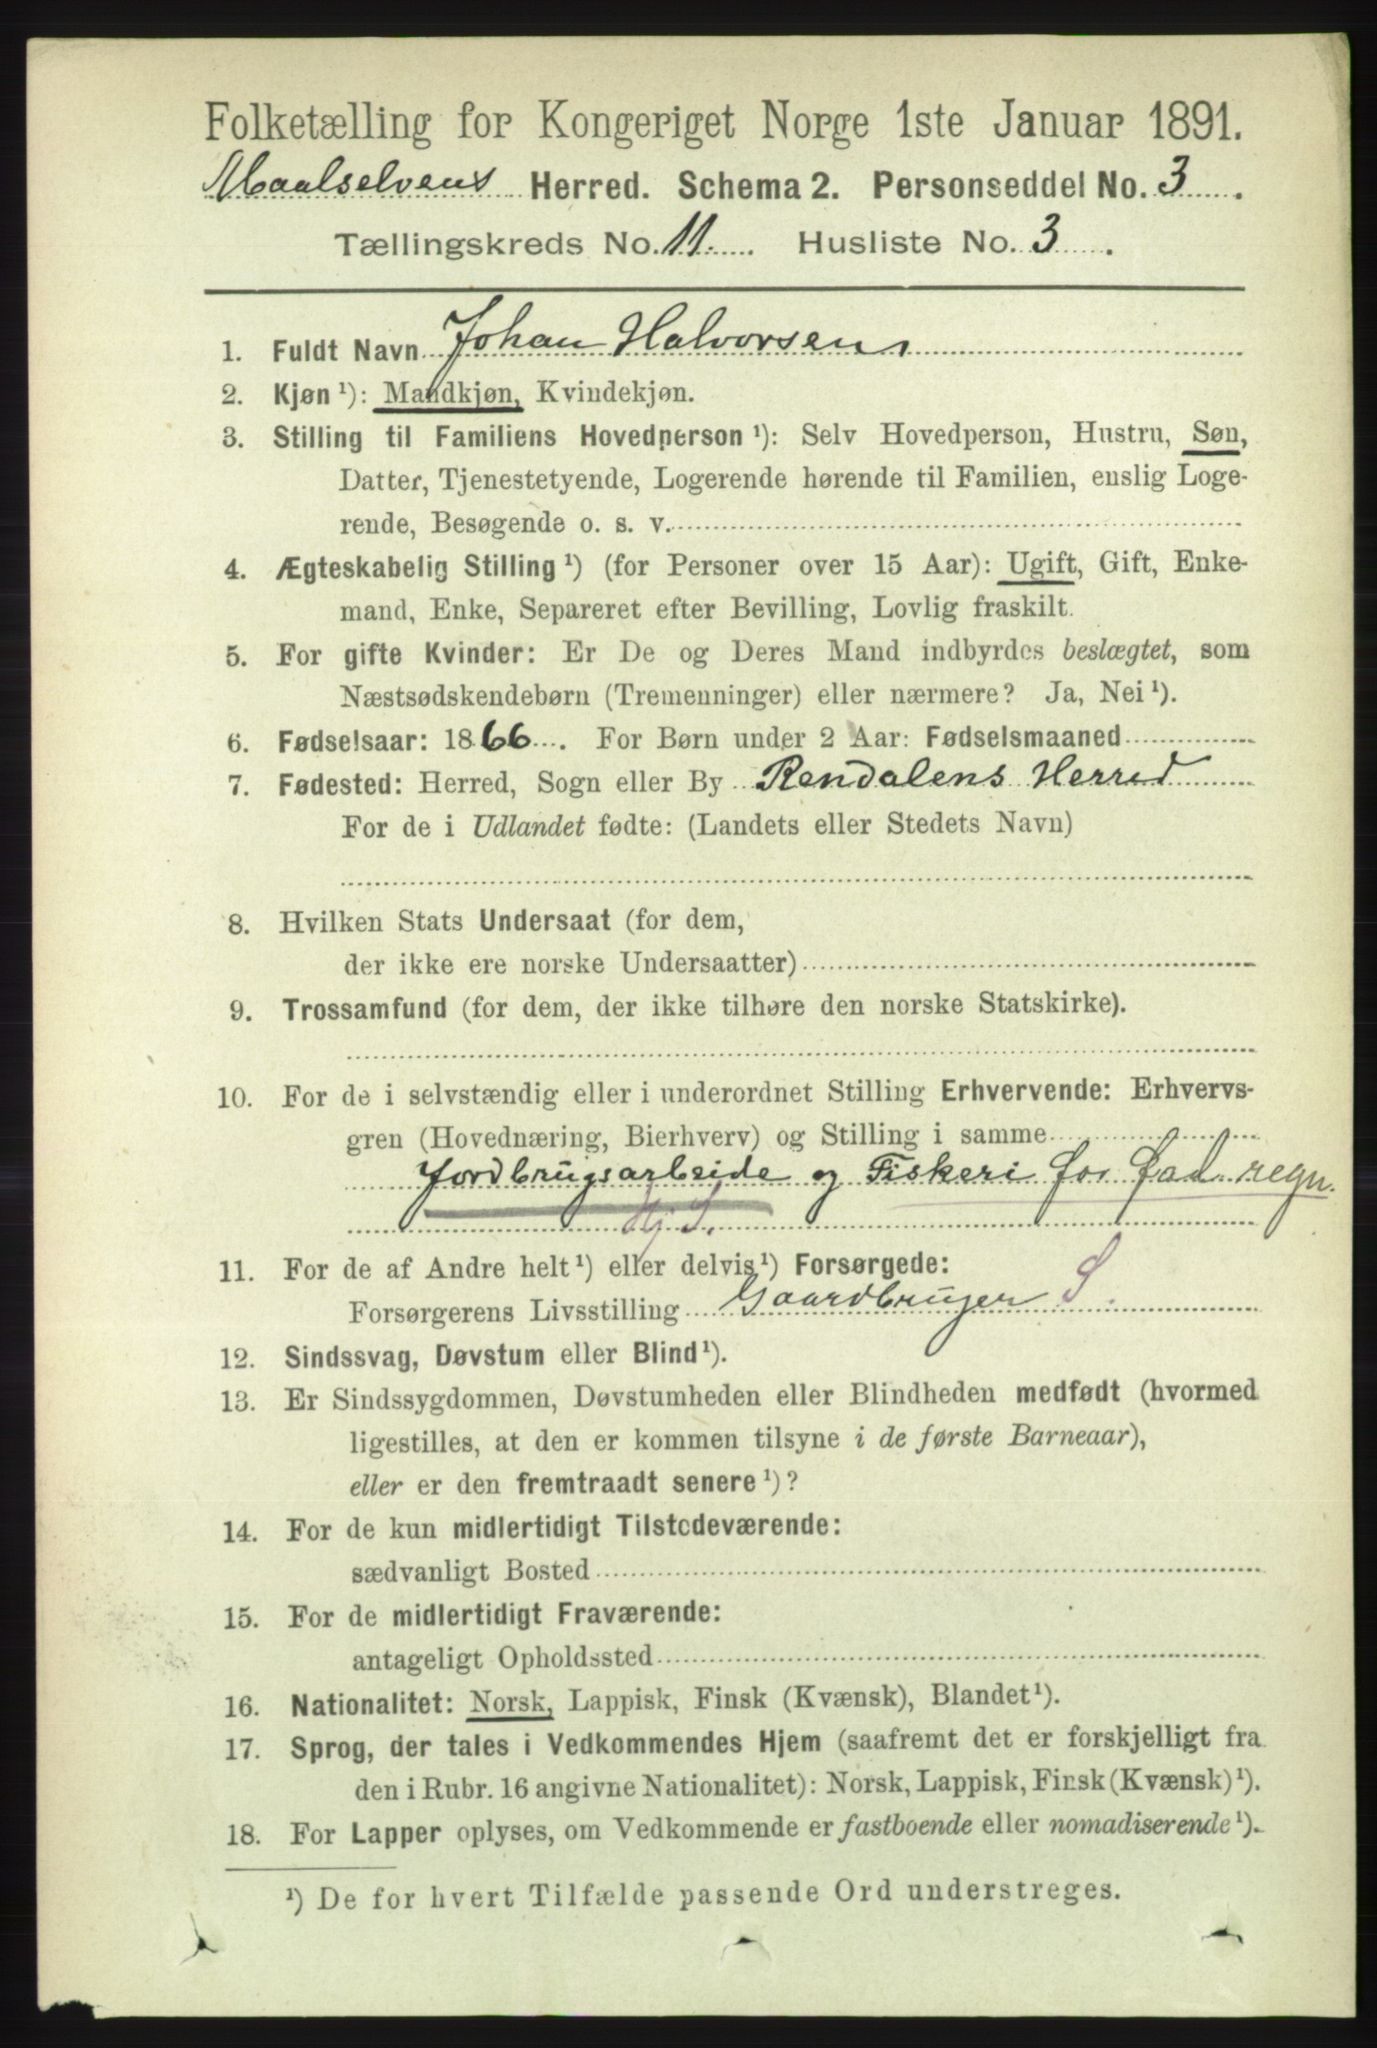 Folketælling for Kongeriget Norge 1ste Januar 1891.
Maalselvens Herred. Schema 2. Personseddel No. 3.
Tællingskreds No. 11. Husliste No. 3.
1. Fuldt Navn Johan Halvorsen
2. Kjøn ¹): Mandkjøn, Kvindekjøn.
3. Stilling til Familiens Hovedperson ¹): Selv Hovedperson, Hustru, Søn,
Datter, Tjenestetyende, Logerende hørende til Familien, enslig Loge-
rende, Besøgende o. s. v.
4. Ægteskabelig Stilling ¹) (for Personer over 15 Aar): Ugift, Gift, Enke-
mand, Enke, Separeret efter Bevilling, Lovlig fraskilt.
5. For gifte Kvinder: Er De og Deres Mand indbyrdes beslægtet, som
Næstsødskendebørn (Tremenninger) eller nærmere? Ja, Nei ¹).
6. Fødselsaar: 1866. For Børn under 2 Aar: Fødselsmaaned
7. Fødested: Herred, Sogn eller By Rendalens Herred
For de i Udlandet fødte: (Landets eller Stedets Navn)
8. Hvilken Stats Undersaat (for dem,
der ikke ere norske Undersaatter)
9. Trossamfund (for dem, der ikke tilhøre den norske Statskirke).
10. For de i selvstændig eller i underordnet Stilling Erhvervende: Erhvervs-
gren (Hovednæring, Bierhverv) og Stilling i samme
Jordbrugsarbeide og Fiskeri for fad. regn.
Hj. S.
11. For de af Andre helt ¹) eller delvis ¹) Forsørgede:
Forsørgerens Livsstilling Gaardbruger S.
12. Sindssvag, Døvstum eller Blind ¹).
13. Er Sindssygdommen, Døvstumheden eller Blindheden medfødt (hvormed
ligestilles, at den er kommen tilsyne i de første Barneaar),
eller er den fremtraadt senere ¹)?
14. For de kun midlertidigt Tilstedeværende:
sædvanligt Bosted
15. For de midlertidigt Fraværende:
antageligt Opholdssted
16. Nationalitet: Norsk, Lappisk, Finsk (Kvænsk), Blandet ¹).
17. Sprog, der tales i Vedkommendes Hjem (saafremt det er forskjelligt fra
den i Rubr. 16 angivne Nationalitet): Norsk, Lappisk, Finsk (Kvænsk) ¹).
18. For Lapper oplyses, om Vedkommende er fastboende eller nomadiserende ¹).
¹) De for hvert Tilfælde passende Ord understreges.